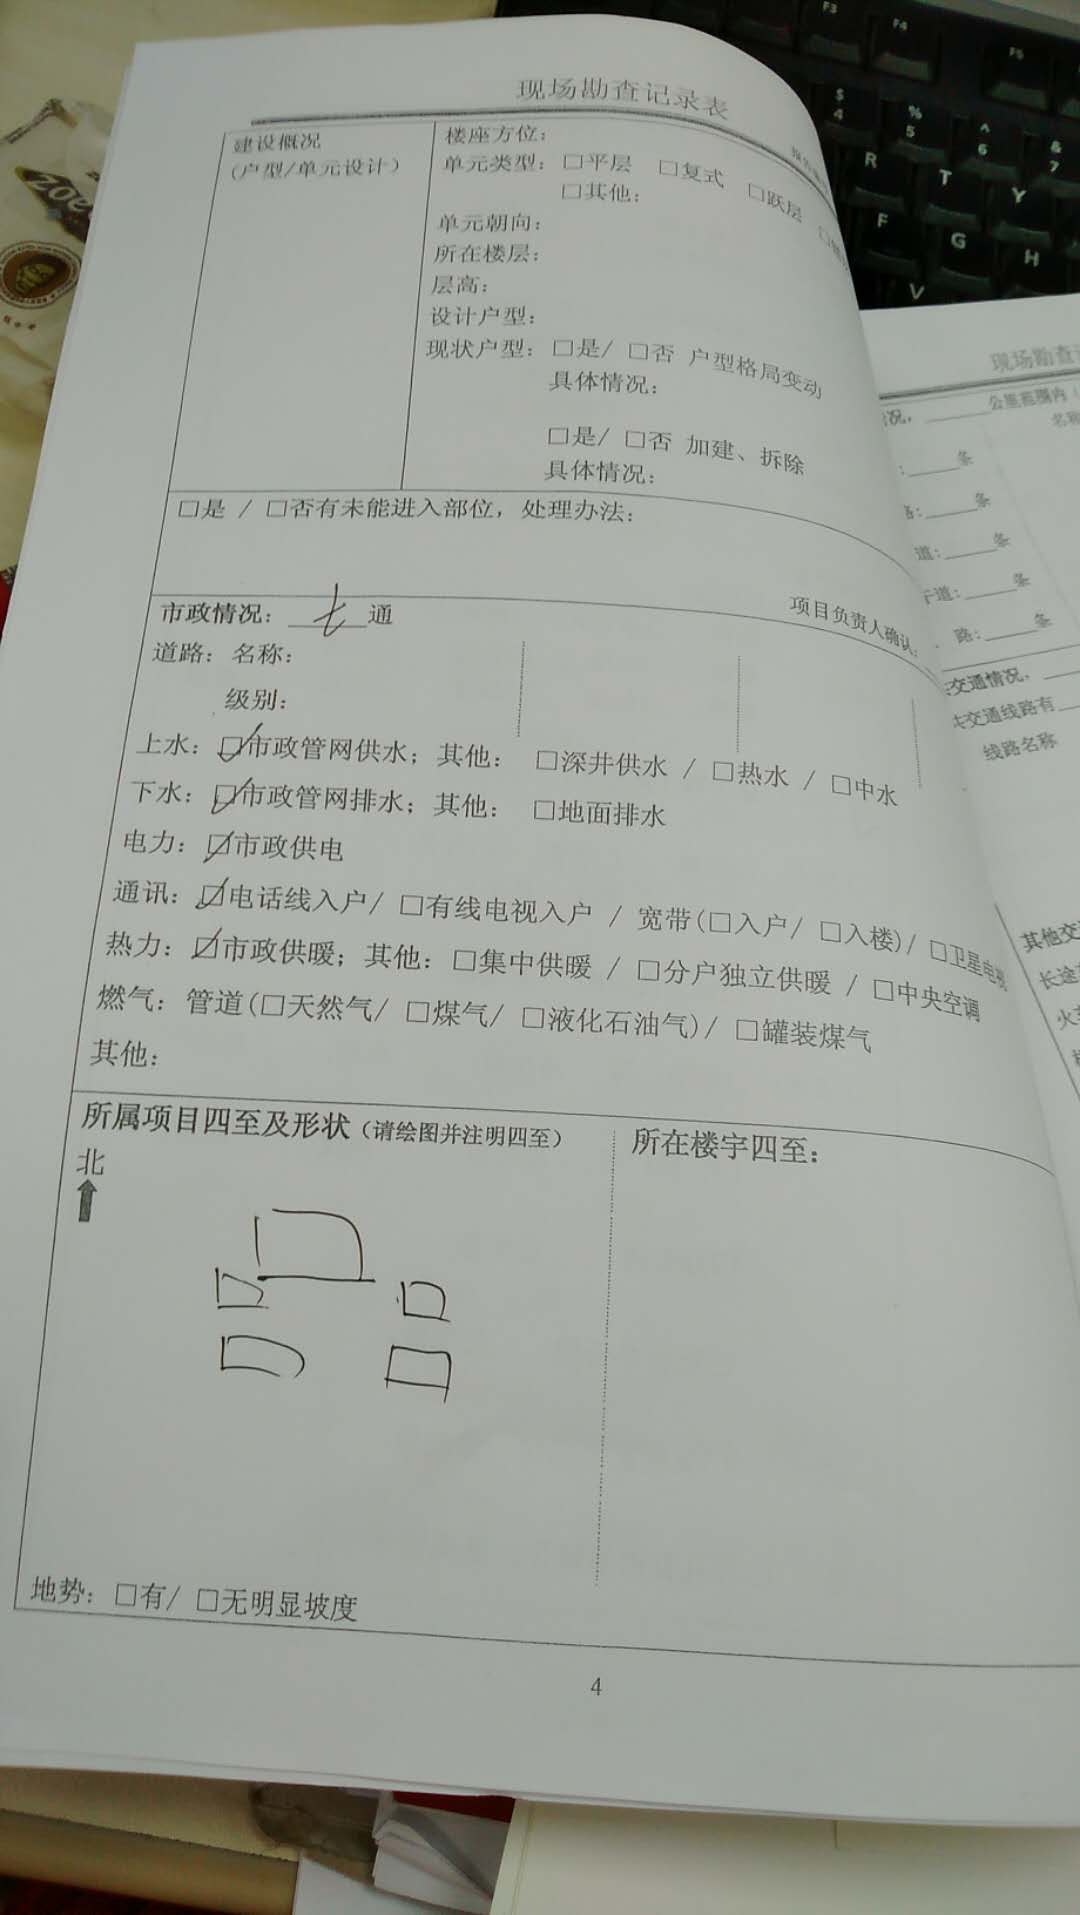 现场勘查记录表
建设概况
(户型/单元设计)
楼座方位：
单元类型：□平层 □复式 □跃层
□其他：
单元朝向：
所在楼层：
层高：
设计户型：
现状户型：□是/ □否 户型格局变动
具体情况：
□是/ □否 加建、拆除
具体情况：
□是 / □否有未能进入部位，处理办法：
市政情况：七通
项目负责人确认：
道路：名称：
级别：
上水：☑市政管网供水；其他： □深井供水 / □热水 / □中水
下水：☑市政管网排水；其他： □地面排水
电力：☑市政供电
通讯：☑电话线入户/ □有线电视入户 / 宽带(□入户/ □入楼)/ □卫星电视
热力：☑市政供暖；其他：□集中供暖 / □分户独立供暖 / □中央空调
燃气：管道(□天然气/ □煤气/ □液化石油气)/ □罐装煤气
其他：
所属项目四至及形状（请绘图并注明四至）
所在楼宇四至：
北
地势：□有/ □无明显坡度
4
现场勘查
况，______公里范围内
：_____条
：_____条
道：_____条
道：_____条
路：_____条
交通情况，
交通线路有
线路名称
其他交
长途
F3
F4
F5
$
4
%
5
^
6
&
7
R
T
Y
F
G
H
V